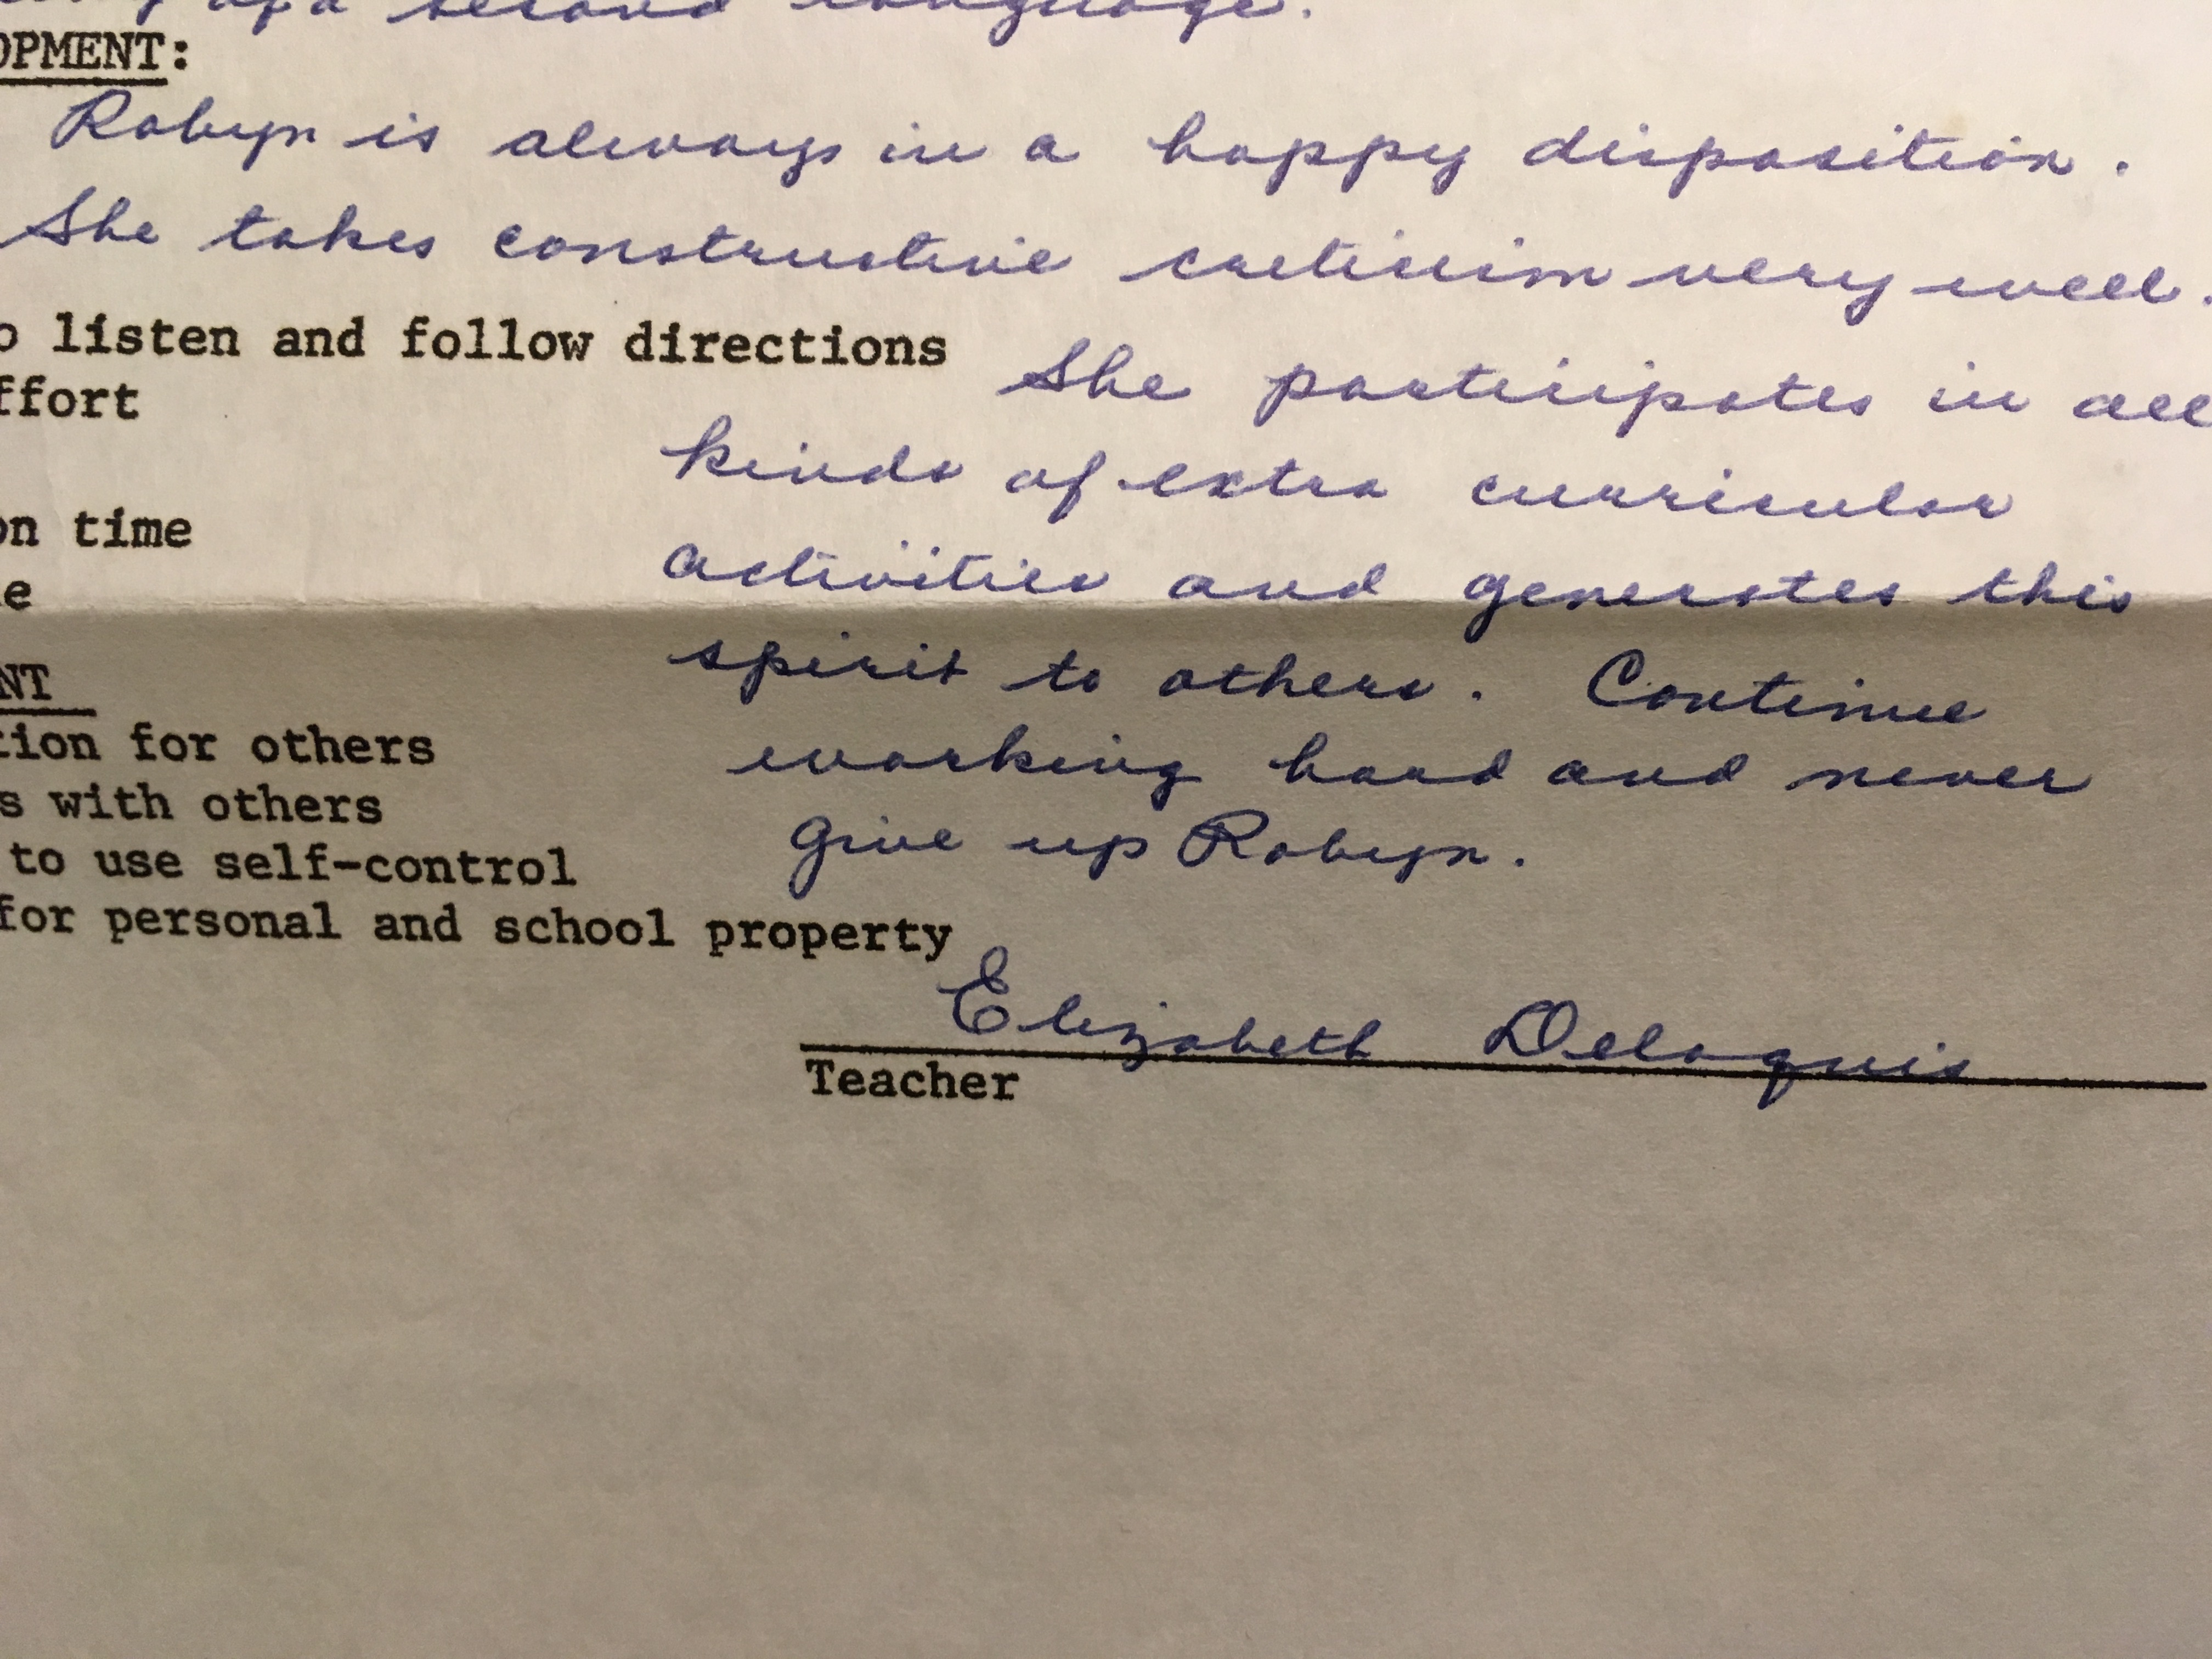 of a second language.
OPMENT:
Robyn is always in a happy disposition.
She takes constructive criticism very well.
o listen and follow directions
She participates in all
ffort
kinds of extra curricular
on time
activities and generates this
e
spirit to others. Continue
NT
tion for others
working hard and never
s with others
give up Robyn.
to use self-control
for personal and school property
Elizabeth Delaquis
Teacher